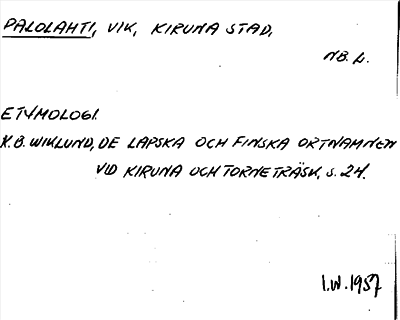 PALOLAHTI, VIK, KIRUNA STAD,
NB. L.
ETYMOLOGI.
K.B. WIKLUND, DE LAPSKA OCH FINSKA ORTNAMNEN
VID KIRUNA OCH TORNETRÄSK, S. 24.
I.W. 1957